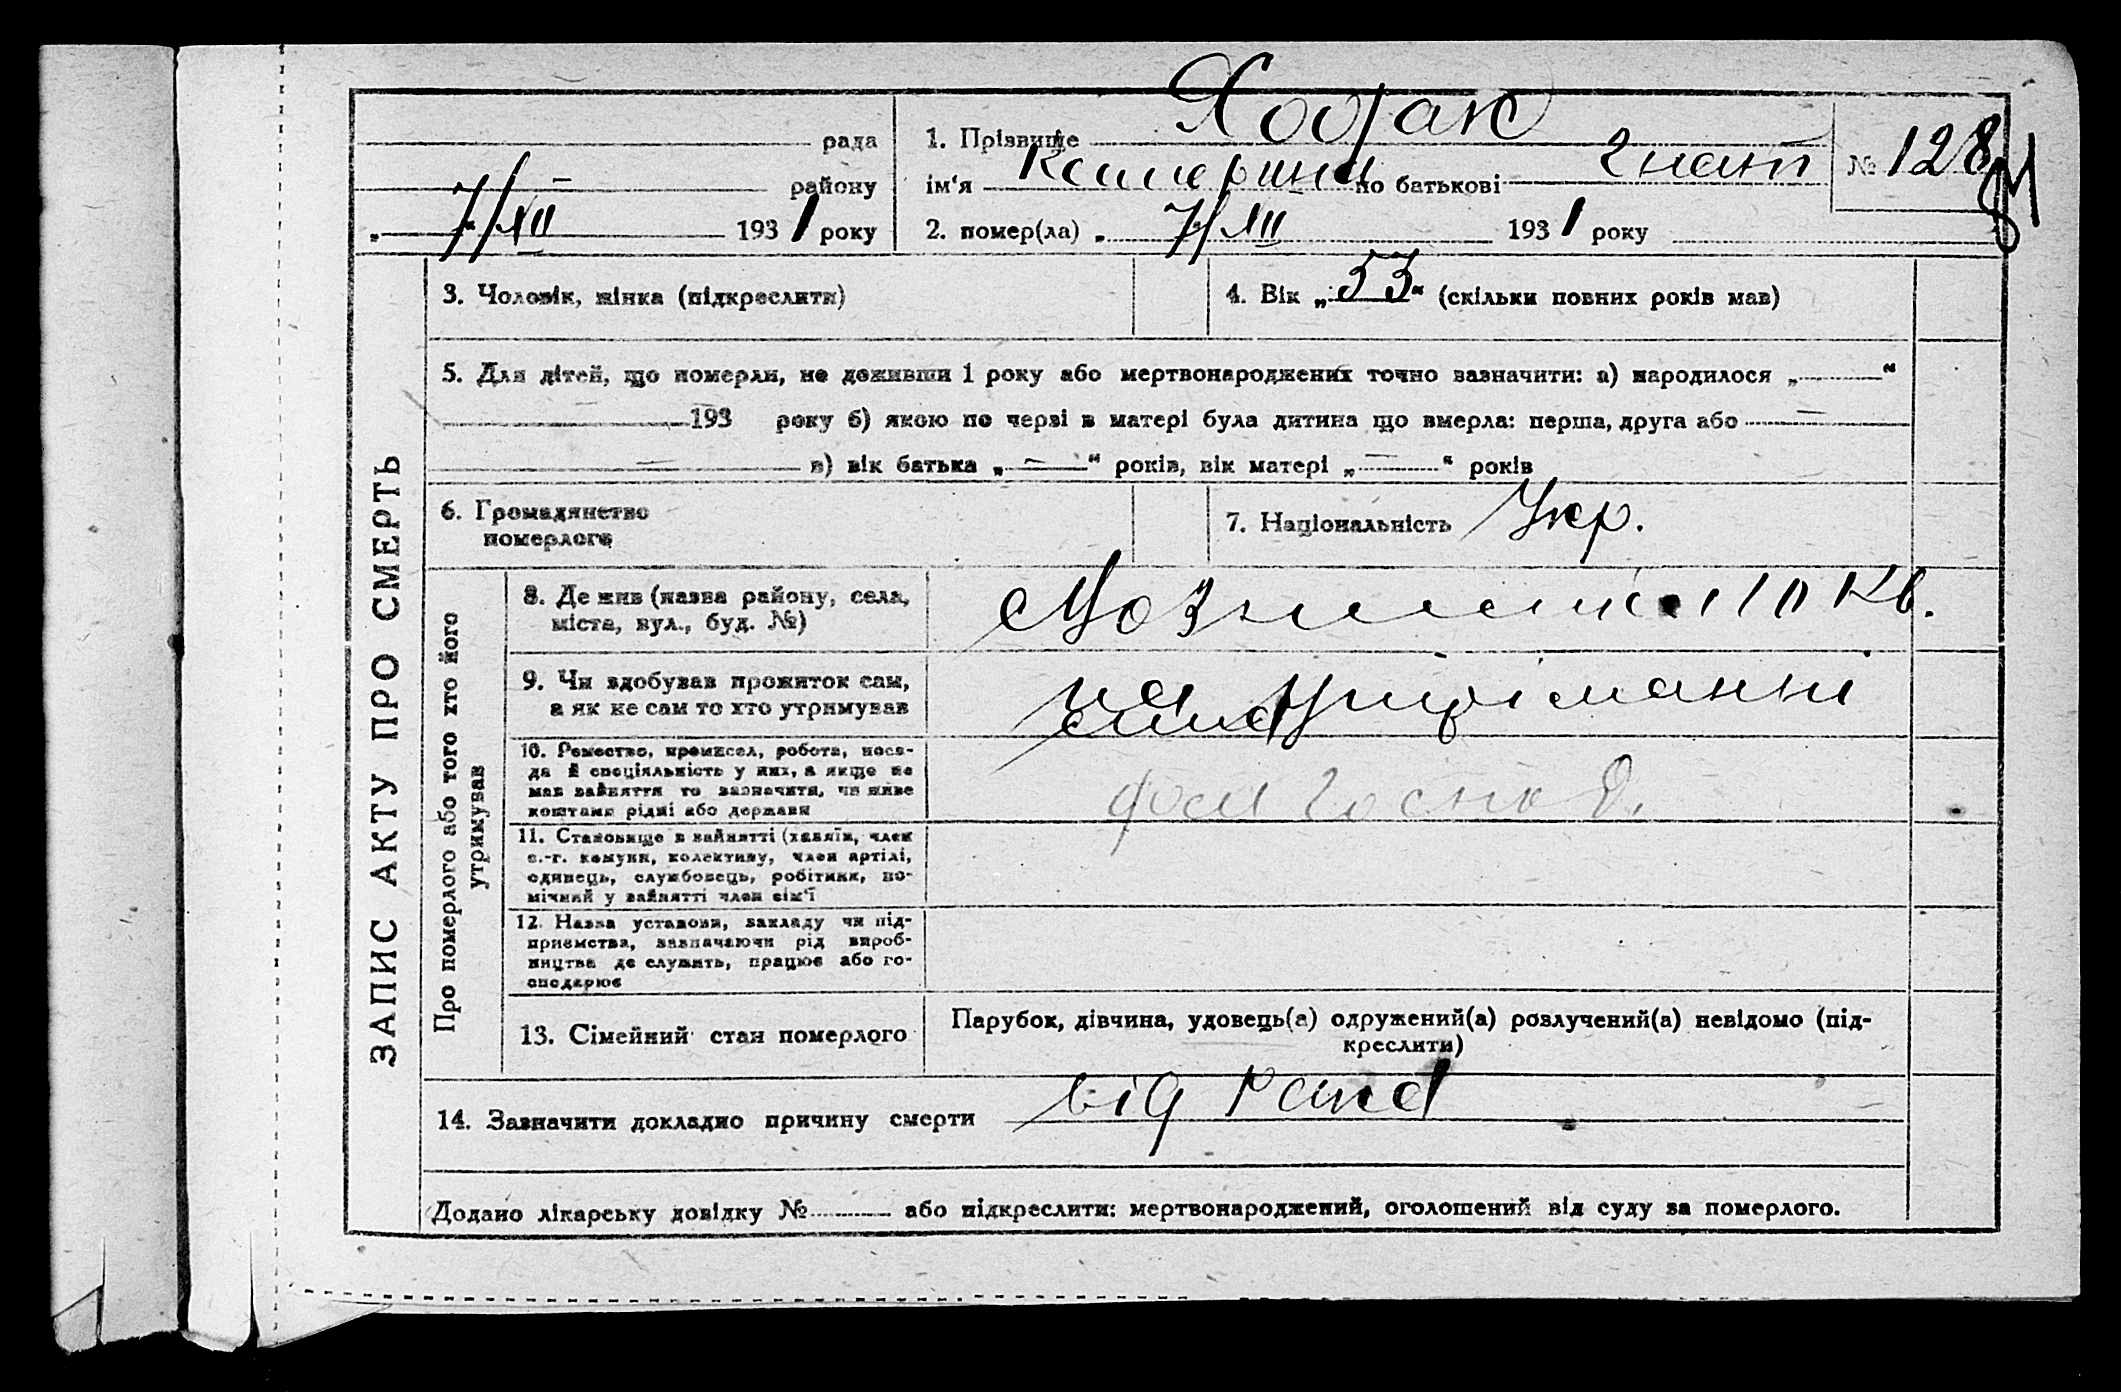 рада
району
„ 7/XII 1931 року
1. Прізвище
ім‘я Катерина по батькові Гнат
2. помер(ла) „ 7/XII 1931 року
№ 128
ЗАПИС АКТУ ПРО СМЕРТЬ
3. Чоловік, жінка (підкреслити)
4. Вік „ 53 “ (скільки повних років мав)
5. Для дітей, що померли, не доживши 1 року або мертвонароджених точно зазначити: а) народилося „ “
193 року б) якою по черзі в матері була дитина що вмерла: перша, друга або —
— в) вік батька „ — “ років, вік матері „ “ років
6. Громадянство
померлого
7. Національність Укр.
Про померлого або того хто його
утримував
8. Де жив (назва району, села,
міста, вул., буд. №)
110 кв.
9. Чи здобував прожиток сам,
а як не сам то хто утримував
на утріманні
сина
10. Ремество, промисел, робота, поса-
да й спеціяльність у них, а якщо не
мав зайняття то зазначити, чи живе
коштами рідні або держави
11. Становище в зайнятті (хазяїн, член
с.-г. комуни, колективу, член артілі,
одинець, службовець, робітник, по-
мічний у зайнятті член сім‘ї
12. Назва установи, закладу чи під-
приємства, зазначаючи рід вироб-
ництва де служить, працює або го-
сподарює
13. Сімейний стан померлого
Парубок, дівчина, удовець(а) одружений(а) розлучений(а) невідомо (під-
креслити)
14. Зазначити докладно причину смерти від рака
Додано лікарську довідку № або підкреслити: мертвонароджений, оголошений від суду за померлого.